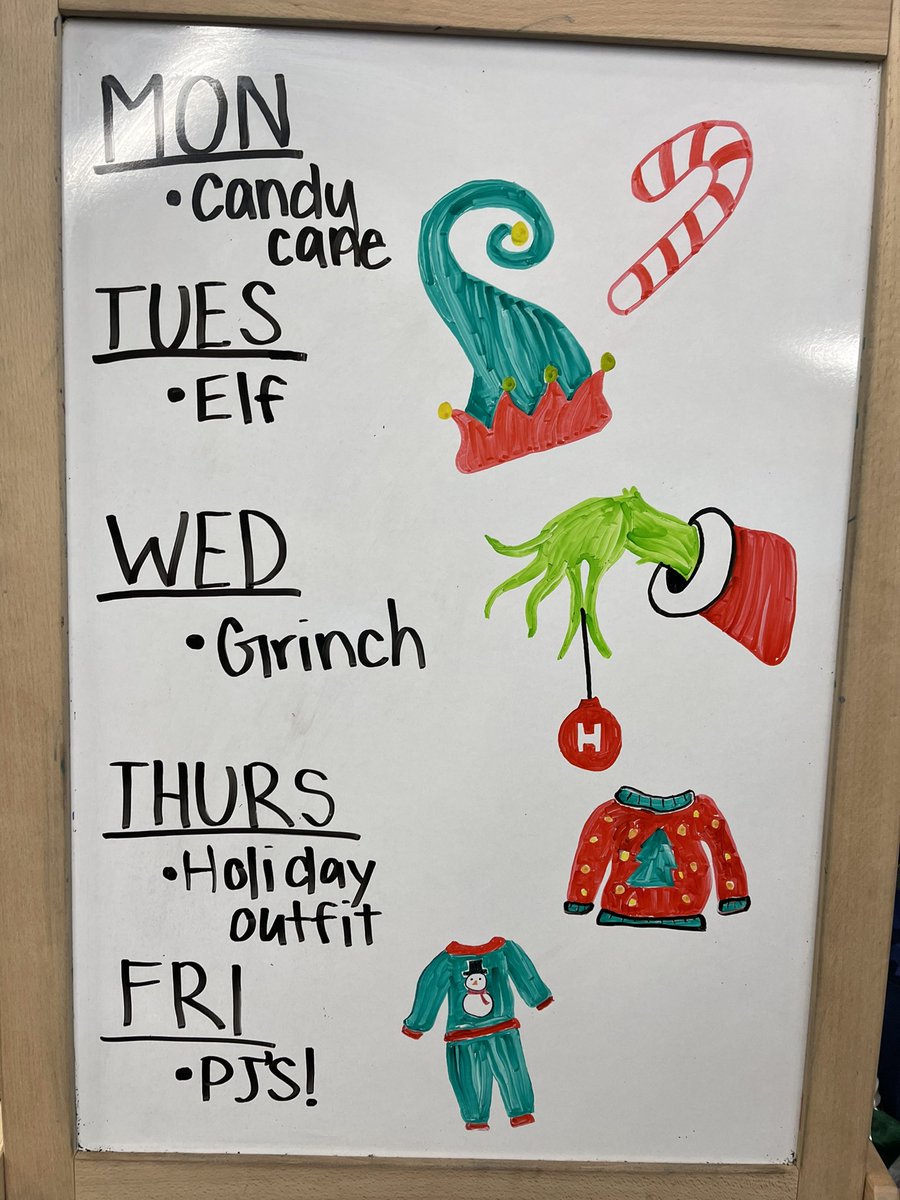 MON
• Candy
cane
TUES
• Elf
WED
• Grinch
H
THURS
• Holiday
outfit
FRI
• PJ's!